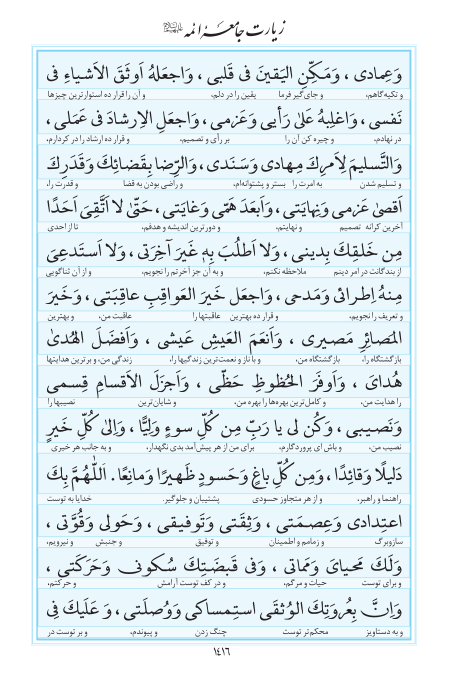 زیارت جامعهٔ ائمه
وَعِمادی ، وَمَکِّنِ الیَقینَ فی قَلبی ، وَاجعَلهُ اَوثَقَ الاَشیاءِ فی
و تکیه‌گاهم، و جای‌گیر فرما یقین را در دلم، و آن را قرار ده استوارترین چیزها
نَفسی ، وَاغلِبهُ عَلیٰ رَأیی وَعَزمی ، وَاجعَلِ الاِرشادَ فی عَمَلی ،
در نهادم، و چیره کن آن را بر رأی و تصمیم، و قرار ده ارشاد را در کردارم،
وَالتَّسلیمَ لِاَمرِكَ مِهادی وَسَنَدی ، وَالرِّضا بِقَضائِكَ وَقَدَرِكَ
و تسلیم شدن به امرت را بستر و پشتوانه‌ام، و راضی بودن به قضا و قدرت را،
اَقصیٰ عَزمی وَنِهایَتی ، وَاَبعَدَ هَمّی وَغایَتی ، حَتّیٰ لا اَتَّقِیَ اَحَدًا
آخرین کرانه تصمیم و نهایتم، و دورترین اندیشه و هدفم، تا از احدی
مِن خَلقِكَ بِدینی ، وَلا اَطلُبَ بِهِ غَیرَ آخِرَتی ، وَلا اَستَدعِیَ
از بندگانت در امر دینم ملاحظه نکنم، و به آن جز آخرتم را نجویم، و از آن ثناگویی
مِنهُ اِطرائی وَمَدحی ، وَاجعَل خَیرَ العَواقِبِ عاقِبَتی ، وَخَیرَ
و تعریف را نجویم، و قرار ده بهترین عاقبتها را عاقبت من، و بهترین
المَصائِرِ مَصیری ، وَاَنعَمَ العَیشِ عَیشی ، وَاَفضَلَ الهُدیٰ
بازگشتگاه را، بازگشتگاه من، و با ناز و نعمت‌ترین زندگیها را، زندگی من، و برترین هدایتها
هُدایَ ، وَاَوفَرَ الحُظوظِ حَظّی ، وَاَجزَلَ الاَقسامِ قِسمی
را هدایت من، و کامل‌ترین بهره‌ها را بهره من، و شایان‌ترین نصیبها را
وَنَصیبی ، وَکُن لی یا رَبِّ مِن کُلِّ سوءٍ وَلِیًّا ، وَاِلیٰ کُلِّ خَیرٍ
نصیب من، و باش ای پروردگارم، برای من از هر پیش‌آمد بدی نگهدار، و به جانب هر خیری
دَلیلًا وَقائِدًا ، وَمِن کُلِّ باغٍ وَحَسودٍ ظَهیرًا وَمانِعًا . اَللّٰهُمَّ بِكَ
راهنما و راهبر، و از هر متجاوز حسودی پشتیبان و جلوگیر. خدایا به توست
اعتِدادی وَعِصمَتی ، وَثِقَتی وَتَوفیقی ، وَحَولی وَقُوَّتی ،
سازوبرگ و زمامم و اطمینان و توفیق و جنبش و نیرویم،
وَلَكَ مَحیایَ وَمَماتی ، وَفی قَبضَتِكَ سُکونی وَحَرَکَتی ،
و برای توست حیات و مرگم، و در کف توست آرامش و حرکتم،
وَاِنَّ بِعُروَتِكَ الوُثقَی استِمساکی وَوُصلَتی ، وَعَلَیكَ فِی
و به دستاویز محکم‌تر توست چنگ زدن و پیوندم، و بر توست در
۱۴۱۶